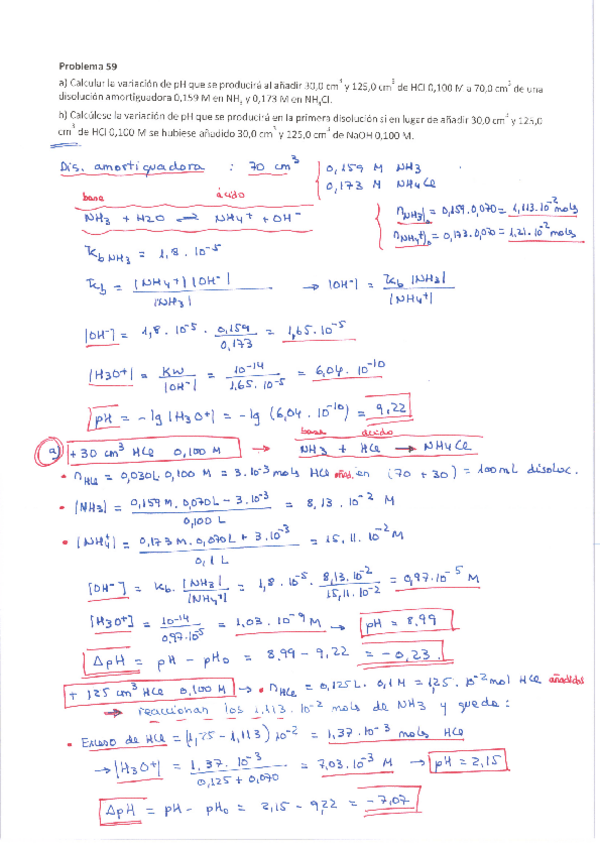 Problema 59
a) Calcular la variación de pH que se producirá al añadir 30,0 cm³ y 125,0 cm³ de HCl 0,100 M a 70,0 cm³ de una
disolución amortiguadora 0,159 M en NH₃ y 0,173 M en NH₄Cl.
b) Calcúlese la variación de pH que se producirá en la primera disolución si en lugar de añadir 30,0 cm³ y 125,0
cm³ de HCl 0,100 M se hubiese añadido 30,0 cm³ y 125,0 cm³ de NaOH 0,100 M.
Dis. amortiguadora : 70 cm³ { 0,159 M NH3
0,173 M NH4Cl
base ácido
NH3 + H2O ⇌ NH4+ + OH-
{ nNH3|0 = 0,159·0,070 = 1,113·10⁻² mols
nNH4+|0 = 0,173·0,070 = 1,21·10⁻² mols
Kb NH3 = 1,8·10⁻⁵
Kb = |NH4+| |OH-| / |NH3| → |OH-| = Kb |NH3| / |NH4+|
|OH-| = 1,8·10⁻⁵ · 0,159 / 0,173 = 1,65·10⁻⁵
|H3O+| = Kw / |OH-| = 10⁻¹⁴ / 1,65·10⁻⁵ = 6,04·10⁻¹⁰
pH = -lg |H3O+| = -lg (6,04·10⁻¹⁰) = 9,22
base ácido
a) + 30 cm³ HCl 0,100 M → NH3 + HCl → NH4Cl
• nHCl = 0,030L·0,100 M = 3·10⁻³ mols HCl añad. en (70 + 30) = 100mL disoluc.
• |NH3| = 0,159 M·0,070L - 3·10⁻³ / 0,100 L = 8,13·10⁻² M
• |NH4+| = 0,173 M·0,070L + 3·10⁻³ / 0,1 L = 15,11·10⁻² M
|OH-| = Kb · |NH3| / |NH4+| = 1,8·10⁻⁵ · 8,13·10⁻² / 15,11·10⁻² = 0,97·10⁻⁵ M
|H3O+| = 10⁻¹⁴ / 0,97·10⁻⁵ = 1,03·10⁻⁹ M → pH = 8,99
ΔpH = pH - pH0 = 8,99 - 9,22 = -0,23
+ 125 cm³ HCl 0,100 M → • nHCl = 0,125L·0,1M = 1,25·10⁻² mol HCl añadidos
→ reaccionan los 1,113·10⁻² mols de NH3 y queda:
• Exceso de HCl = (1,25 - 1,113) 10⁻² = 1,37·10⁻³ mols HCl
→ |H3O+| = 1,37·10⁻³ / 0,125 + 0,070 = 7,03·10⁻³ M → pH = 2,15
ΔpH = pH - pH0 = 2,15 - 9,22 = -7,07